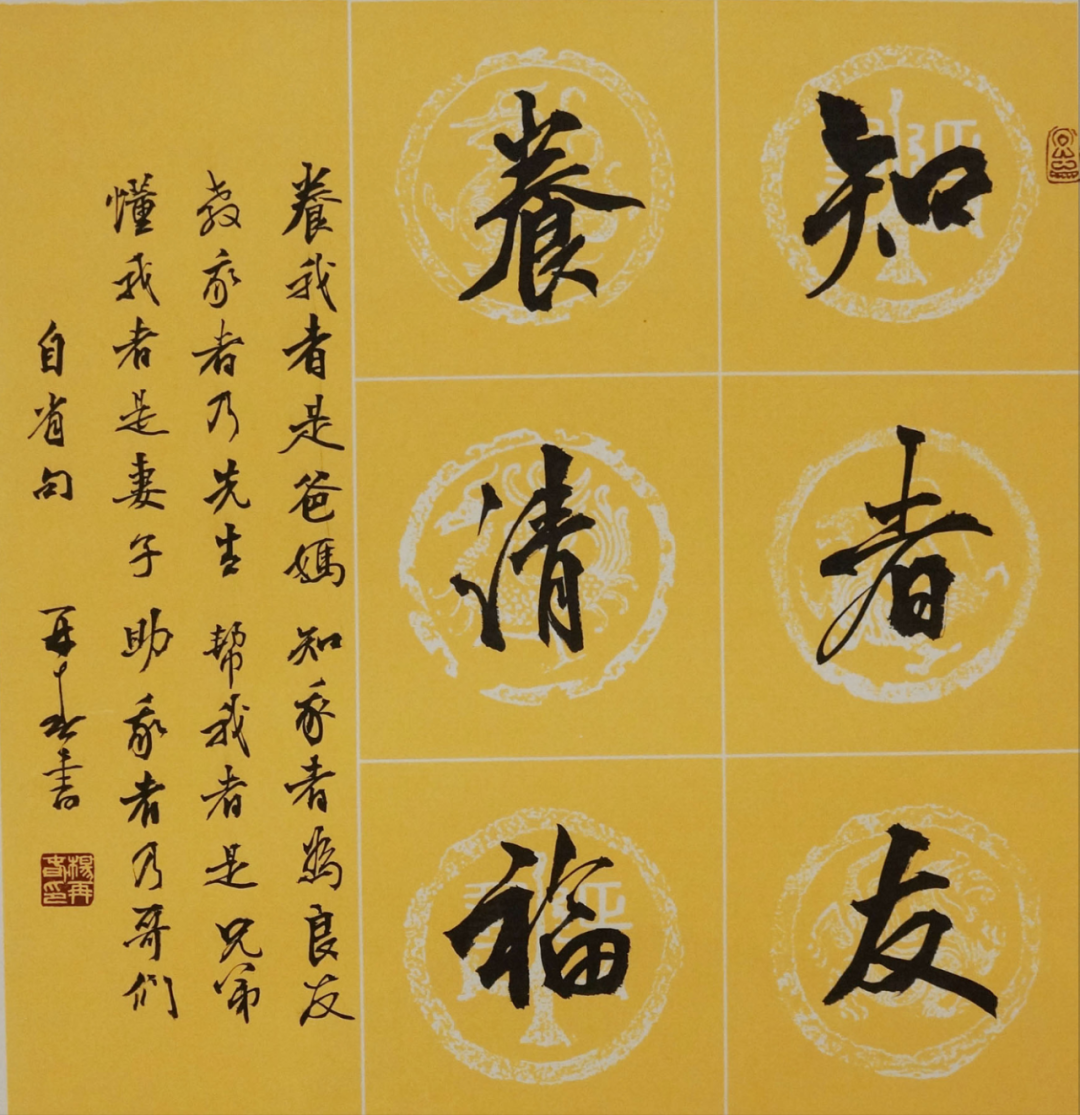 知者友
養清福
養我者是爸媽 知我者為良友
教我者乃先生 幫我者是兄弟
懂我者是妻子 助我者乃哥们
自省句 再春書
楊再春印